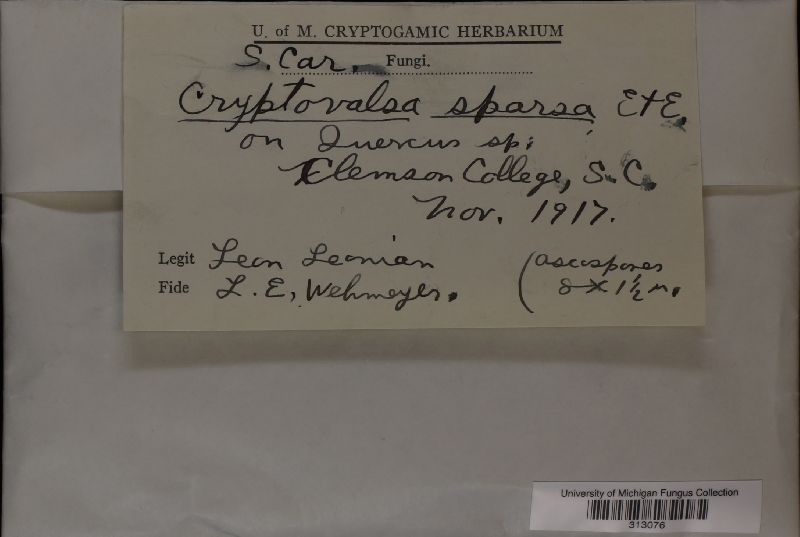 U. of M. CRYPTOGAMIC HERBARIUM
S. Car. Fungi.
Cryptovalsa sparsa E+E.
on Quercus sp.
Clemson College, S.C.
Nov. 1917.
Legit Leon Leonian
Fide L. E. Wehmeyer.
(ascospores
8 X 1½ µ.
University of Michigan Fungus Collection
313076